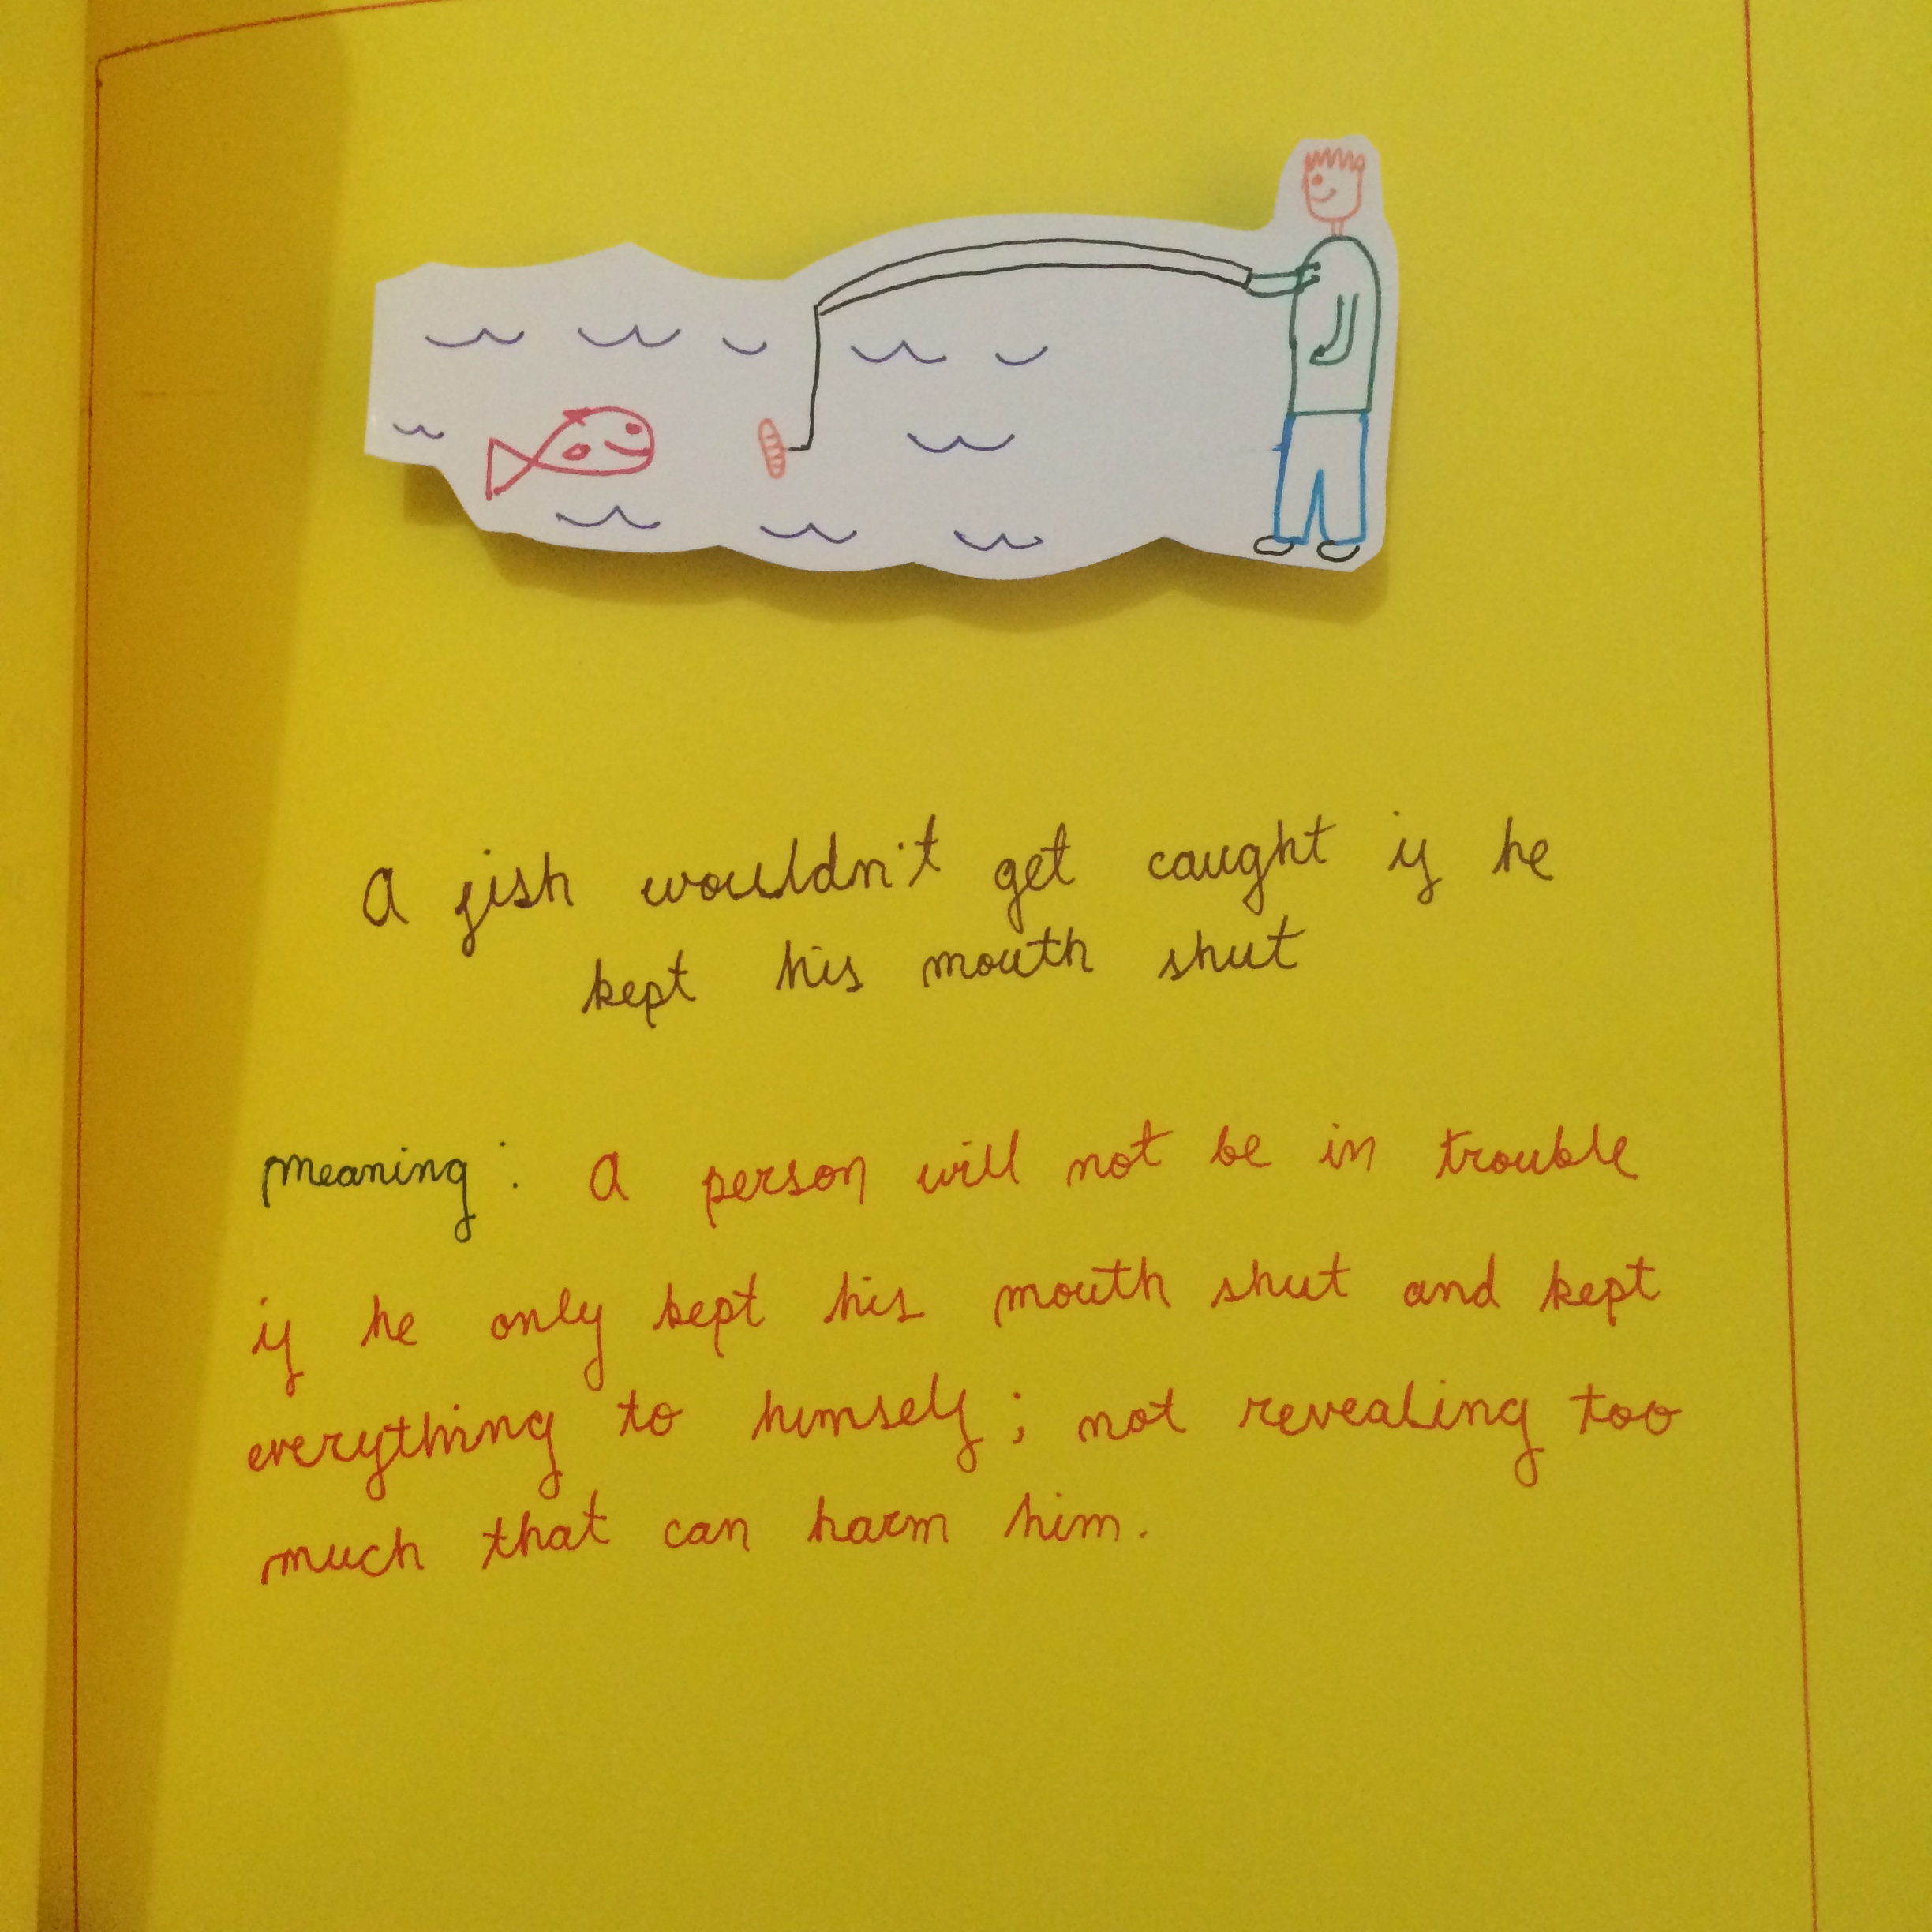 A fish wouldn't get caught if he
kept his mouth shut
meaning : A person will not be in trouble
if he only kept his mouth shut and kept
everything to himself ; not revealing too
much that can harm him.